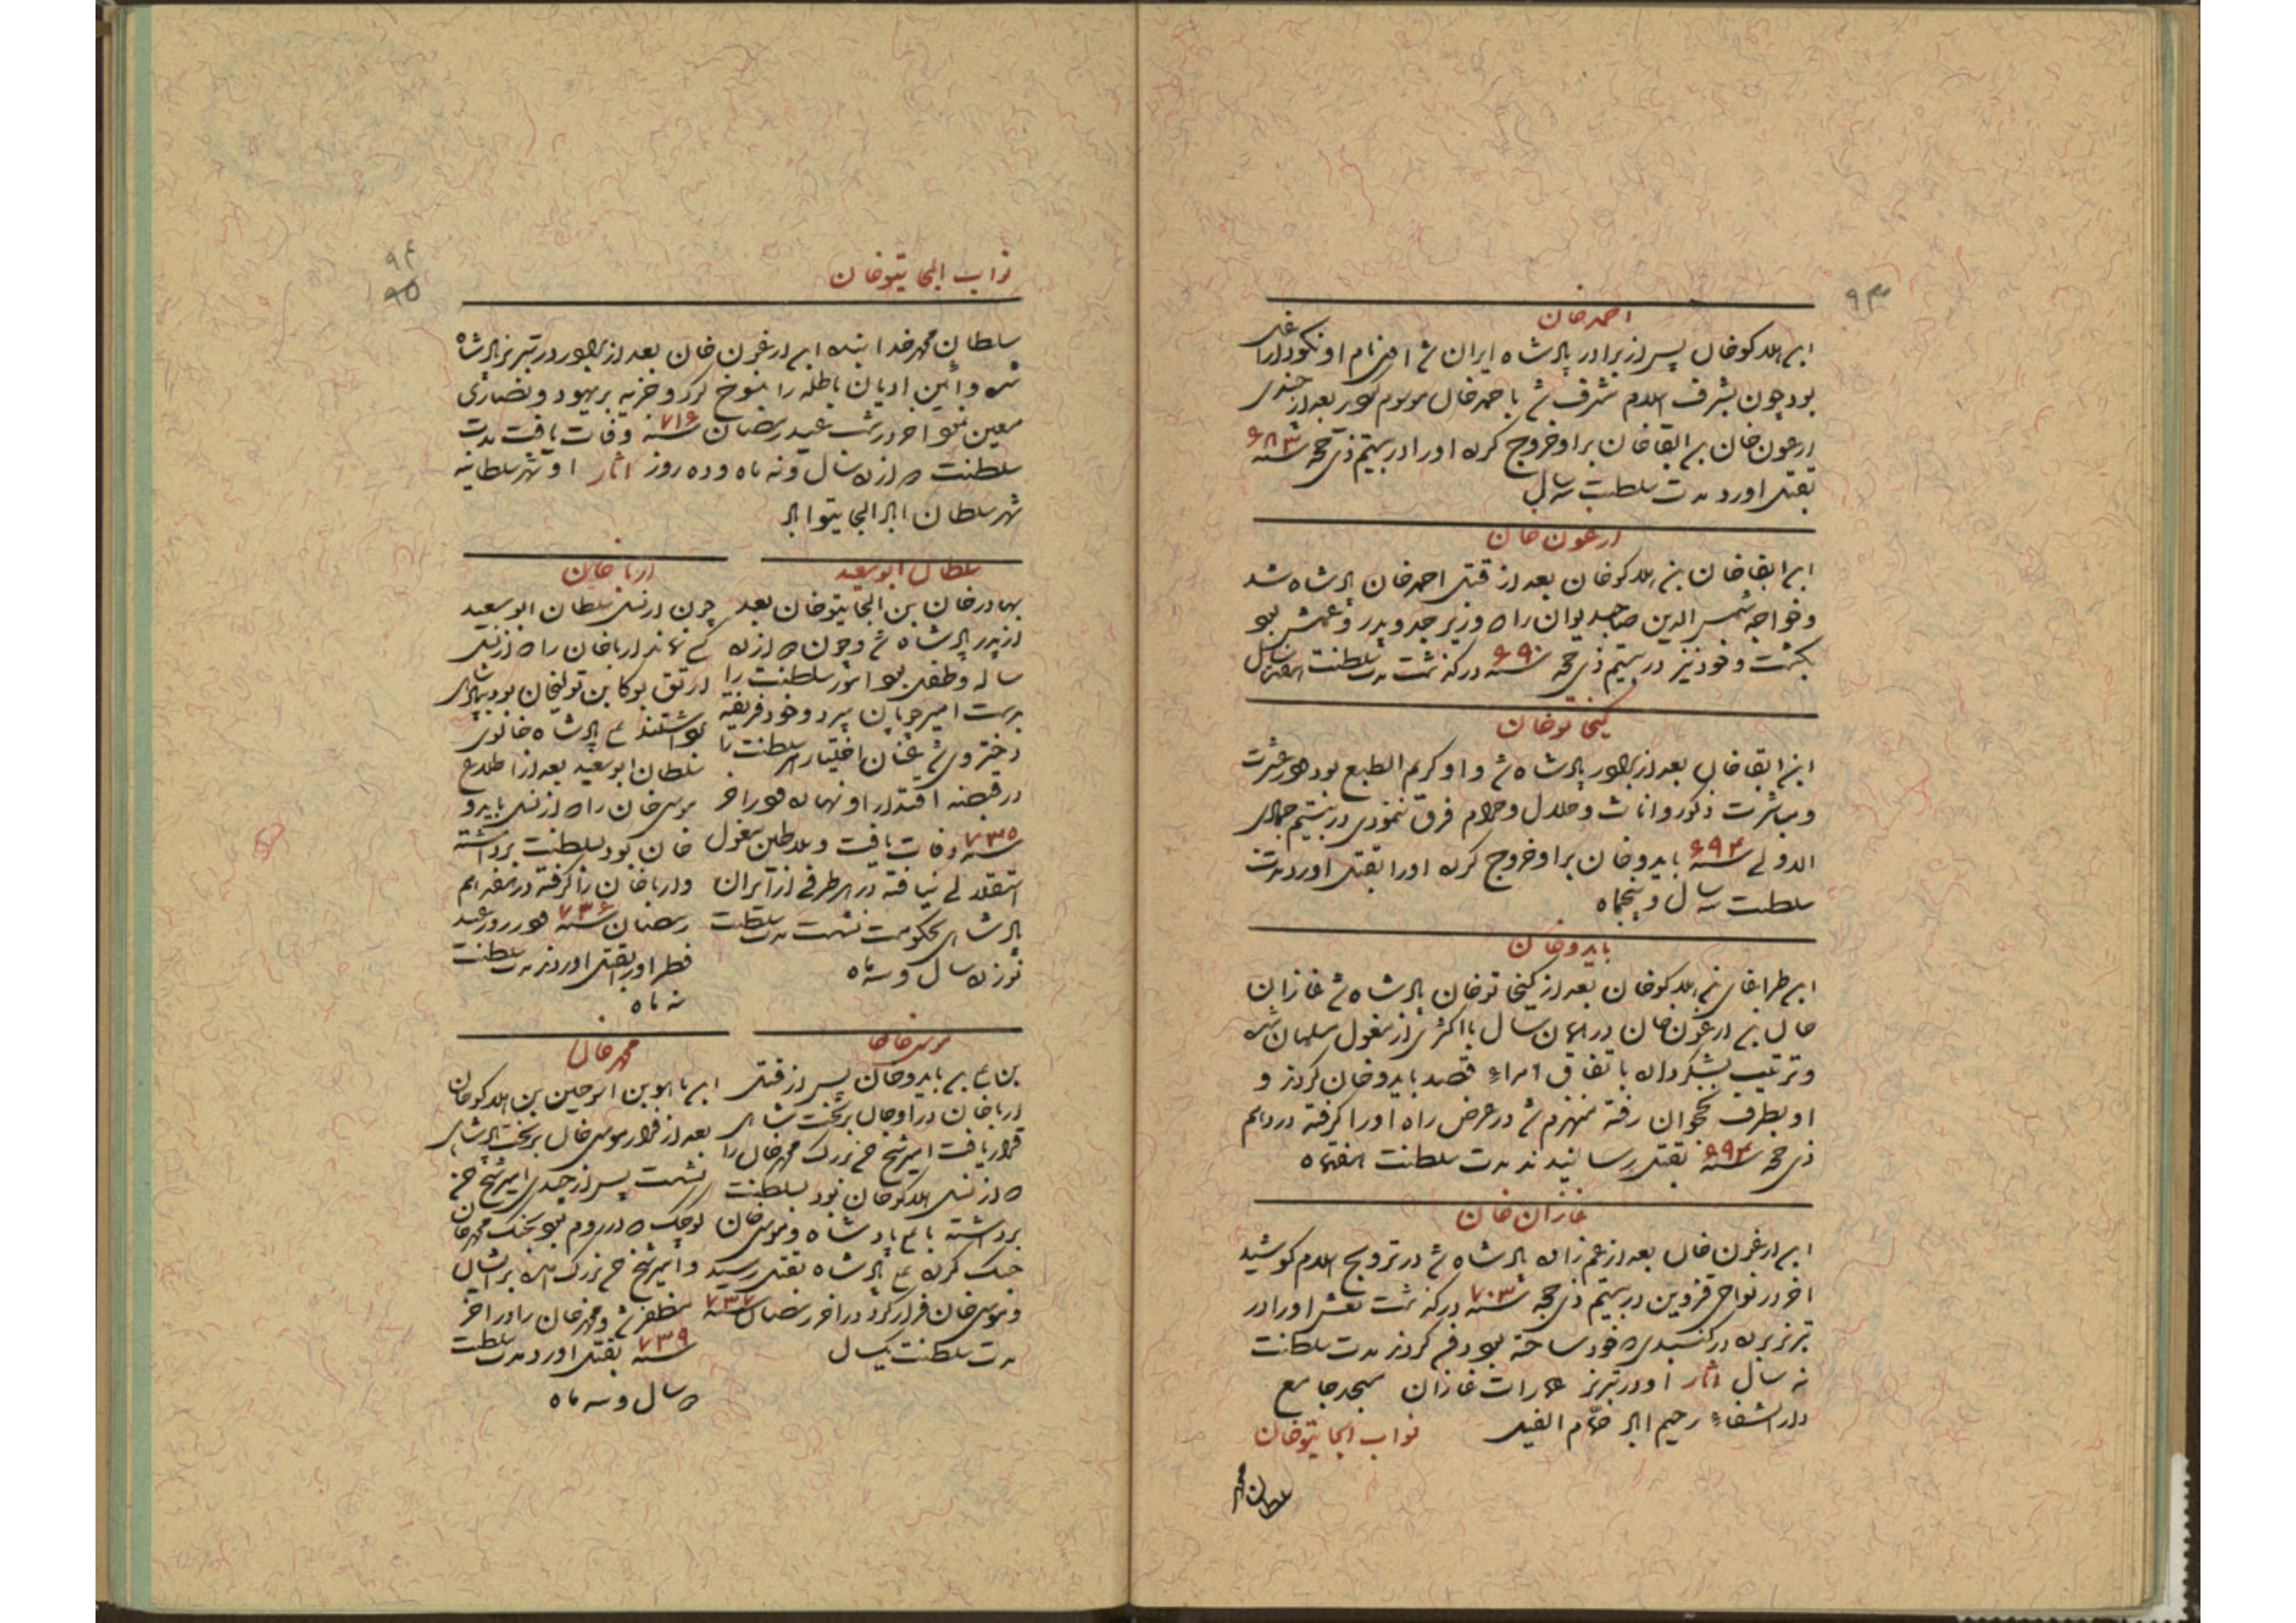 ۹۳
احمدخان
ابن هلاکوخان پس از برادر پادشاه ایران شد اصل نام او نکودار اغلی
بود چون بشرف اسلام مشرف شد باحمدخان موسوم بود بعد از چندی
ارغون خان بن ابقاخان بر او خروج کرده او را در بیستم ذی حجه سنه ۶۸۳
بقتل اورد مدت سلطنت سه سال
ارغون خان
ابن ابقاخان بن هلاکوخان بعد از قتل احمدخان پادشاه شد
وخواجه شمس الدین صاحبدیوان را که وزیر جد و پدر و عمش بود
بکشت وخود نیز در بیستم ذی حجه سنه ۶۹۰ درگذشت مدت سلطنت هفت سال
کیخاتوخان
ابن ابقاخان بعد از برادر پادشاه شد و او کریم الطبع بود در عشرت
ومباشرت ذکور واناث وحلال وحرام فرق ننمودی در بیستم جمادی
الاولی سنه ۶۹۴ بایدوخان بر او خروج کرده او را بقتل اورد مدت
سلطنت سه سال و پنجماه
بایدوخان
ابن طراغای بن هلاکوخان بعد از کیخاتوخان پادشاه شد غازان
خان بن ارغون خان در همان سال با اکثری از مغول مسلمان شده
وترتیب لشکر داده باتفاق امراء قصد بایدوخان کردند و
او بطرف نخجوان رفته منهزم شد در عرض راه او را گرفته در
ذی حجه سنه ۶۹۴ بقتل رسانیدند مدت سلطنت هفتماه
غازان خان
ابن ارغون خان بعد از عم زاده پادشاه شد در ترویج اسلام کوشید
اخر در نواحی قزوین در بیستم ذی حجه سنه ۷۰۳ درگذشت نعش او را در
تبریز برده در گنبدی که خود ساخته بود دفن کردند مدت سلطنت
نه سال اثار او در تبریز عمارات غازان مسجد جامع
دارالشفاء رحیم اباد حمام
نواب الجایتوخان
سلطان محمد
۹۴
۹۵
نواب الجایتوخان
سلطان محمد خدابنده ابن ارغون خان بعد از برادر در تبریز پادشاه
شده وائین ادیان باطله را منسوخ کرد و جزیه بر یهود و نصاری
معین نمود اخر در شب عید رمضان سنه ۷۱۶ وفات یافت مدت
سلطنت دوازده سال و نه ماه و ده روز اثار او شهر سلطانیه
شهر سلطان اباد الجایتو اباد
سلطان ابوسعید
بهادرخان بن الجایتوخان بعد
از پدر پادشاه شد و چون دوازده
ساله وطفل بود امور سلطنت را
بدست امیر چوپان سپرد و خود فریفته
دختر وی شد عنان اختیار سلطنت با
در قبضه اقتدار او نهاده بود اخر
سنه ۷۳۵ وفات یافت وسلاطین مغول
استقلالی نیافته در هر طرفی از ایران
پادشاهی بحکومت نشست مدت سلطنت
نوزده سال و سه ماه
ارپاخان
چون از نسل سلطان ابوسعید
کسی نماند ارپاخان را که از نسل
ارتق بوکا بن تولیخان بود بپادشاهی
برداشتند علی پادشاه خالوی
سلطان ابوسعید بعد از اطلاع
موسی خان را که از نسل بایدو
خان بود بسلطنت برداشته
وارپاخان را گرفته در
رمضان سنه ۷۳۶ در روز عید
فطر او را بقتل اوردند مدت سلطنت
نه ماه
موسی خان
بن علی بن بایدوخان پس از قتل
ارپاخان در اوجان بر تخت شاهی
قرار یافت امیر شیخ حسن بزرگ محمدخان را
که از نسل هلاکوخان بود بسلطنت
برداشته با علی پادشاه و موسی خان
جنگ کرده علی پادشاه بقتل رسید
و موسی خان فرار کرد در اخر رمضان سنه ۷۳۷
مدت سلطنت یکسال
محمدخان
هلاکوخان
بعد از فرار موسی خان بر تخت پادشاهی
نشست پس از چندی امیر شیخ حسن
کوچک که در روم بود بجنگ محمدخان
وامیر شیخ حسن بزرگ امده بر ایشان
مظفر شد و محمدخان را در اخر
سنه ۷۳۹ بقتل اورد مدت سلطنت
دو سال و سه ماه